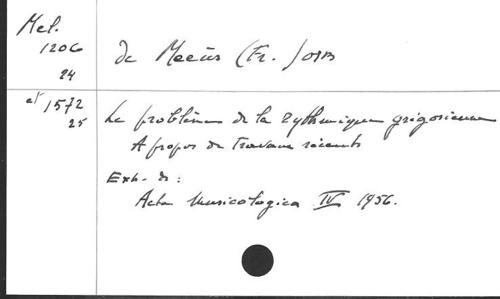 Mel.
1206
24
de Meeûs (Fr.) OSB
et 1572
25
Le problème de la rythmique grégorienne
A propos de travaux récents
Extr. de:
Acta Musicologica IV 1956.